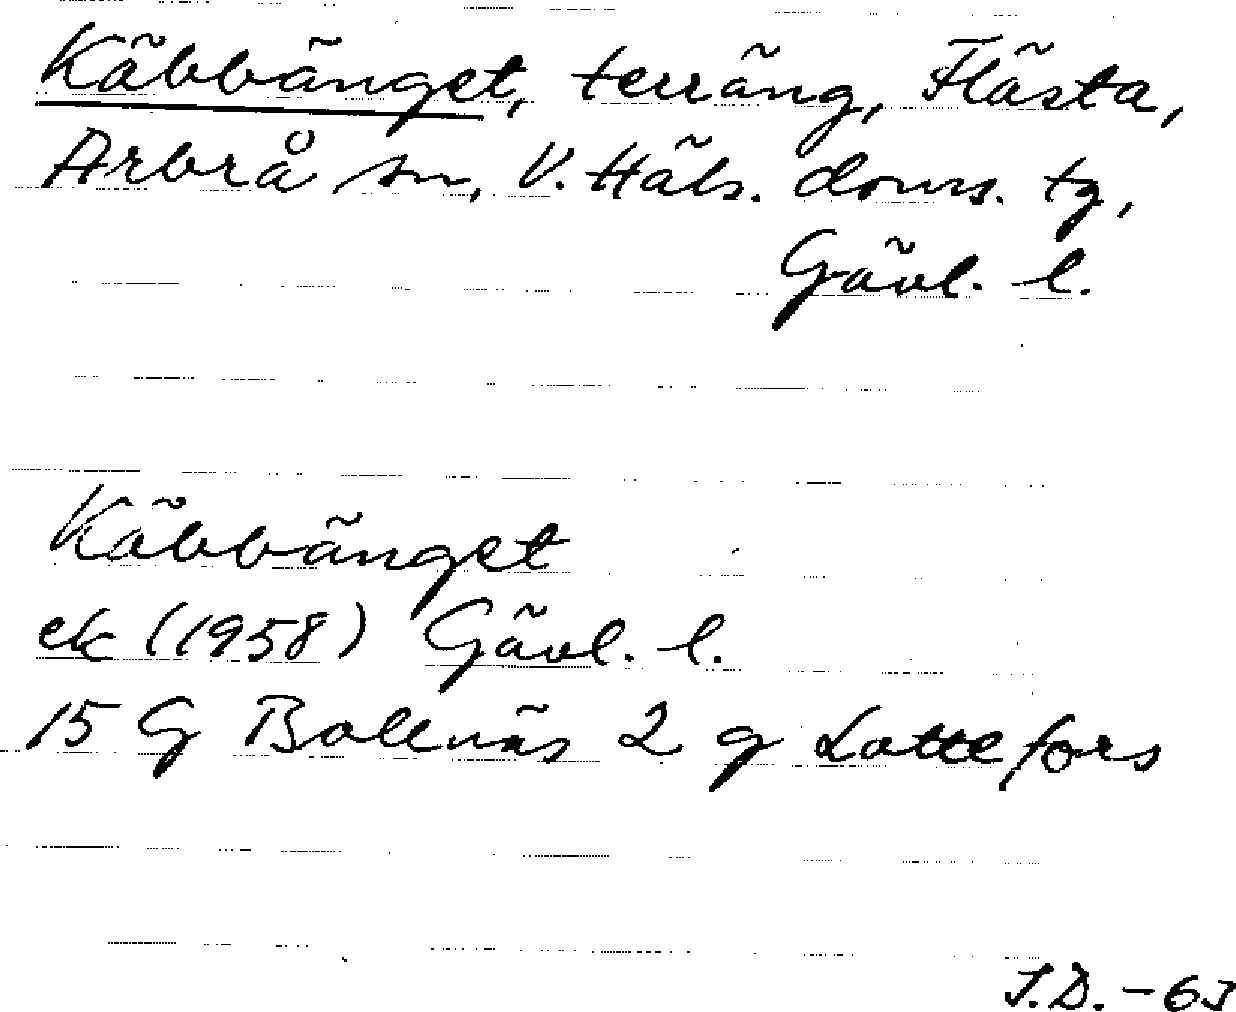 Käbbänget, terräng, Flästa,
Arbrå sn, V. Häls. doms. tg,
Gävl. l.
Käbbänget
ek (1958) Gävl. l.
15 G Bollnäs 2 g Lottefors
J.D. - 63